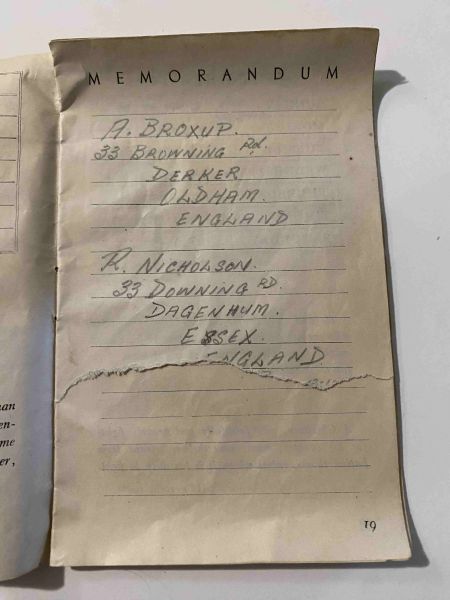 MEMORANDUM
A. BROXUP.
33 BROWNING Rd.
DERKER
OLDHAM.
ENGLAND
R. NICHOLSON.
33 DOWNING RD.
DAGENHUM.
ESSEX.
ENGLAND
19
man
en-
me
er,